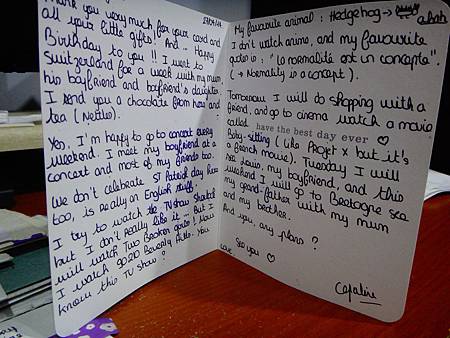 Thank you very much for your card and
all your little gifts! And... Happy
Birthday to you !! I went to
Switzerland for a week with my mum,
his boyfriend and boyfriend's daughter.
I send you a chocolate from here and
tea (Nettles).
Yes, I'm happy to go to concert every
weekend. I meet my boyfriend at a
concert and most of my friends too.
We don't celebrate St Patrick day here
too, is really an English stuff.
I try to watch the TV show
but I don't really like it... But I
will watch Two Broken girls! Now
I watch 90210 Beverly Hills. You
know this TV show?
My favourite animal: Hedgehog →
I don't watch anime, and my favourite
quotes is: "la normalité est un concepte".
(→ Normality is a concept).
Tomorrow I will do shopping with a
friend, and go to cinema watch a movie
called have the best day ever ♡
Baby-sitting (like Projet X but it's
a french movie). Tuesday I will
see Louis, my boyfriend, and this
weekend I will go to Bretagne see
my grand-father with my mum
and my brother.
And you, any plans?
See you ♡